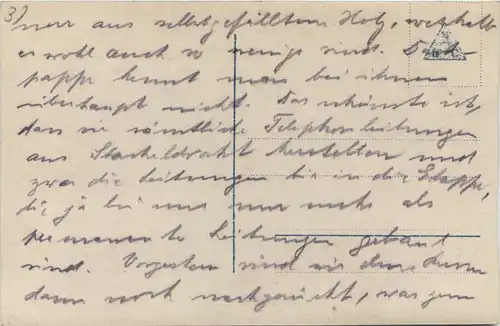 3)
nur aus selbstgefälltem Holz, weshalb
es wohl auch so wenige sind. Dach-
pappe kennt man bei ihnen
überhaupt nicht. Das schönste ist,
dass sie sämtliche Telephonleitungen
aus Stacheldraht herstellten und
zwar die Leitungen bis in die Etappe,
die ja bei uns nur mehr als
permanente Leitungen gebaut
sind. Vorgestern sind wir den Russen
dann noch nachgerückt, was zum